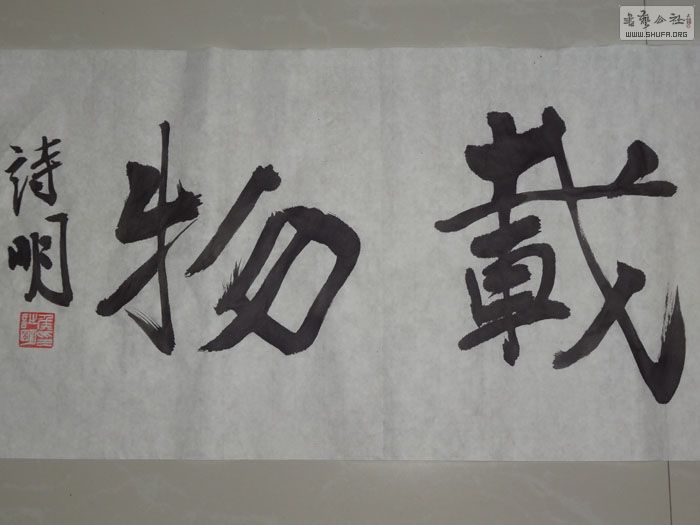 載物
詩明
書藝公社
WWW.SHUFA.ORG